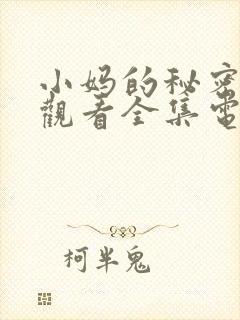 小妈的秘密
觀看全集電
柯半鬼